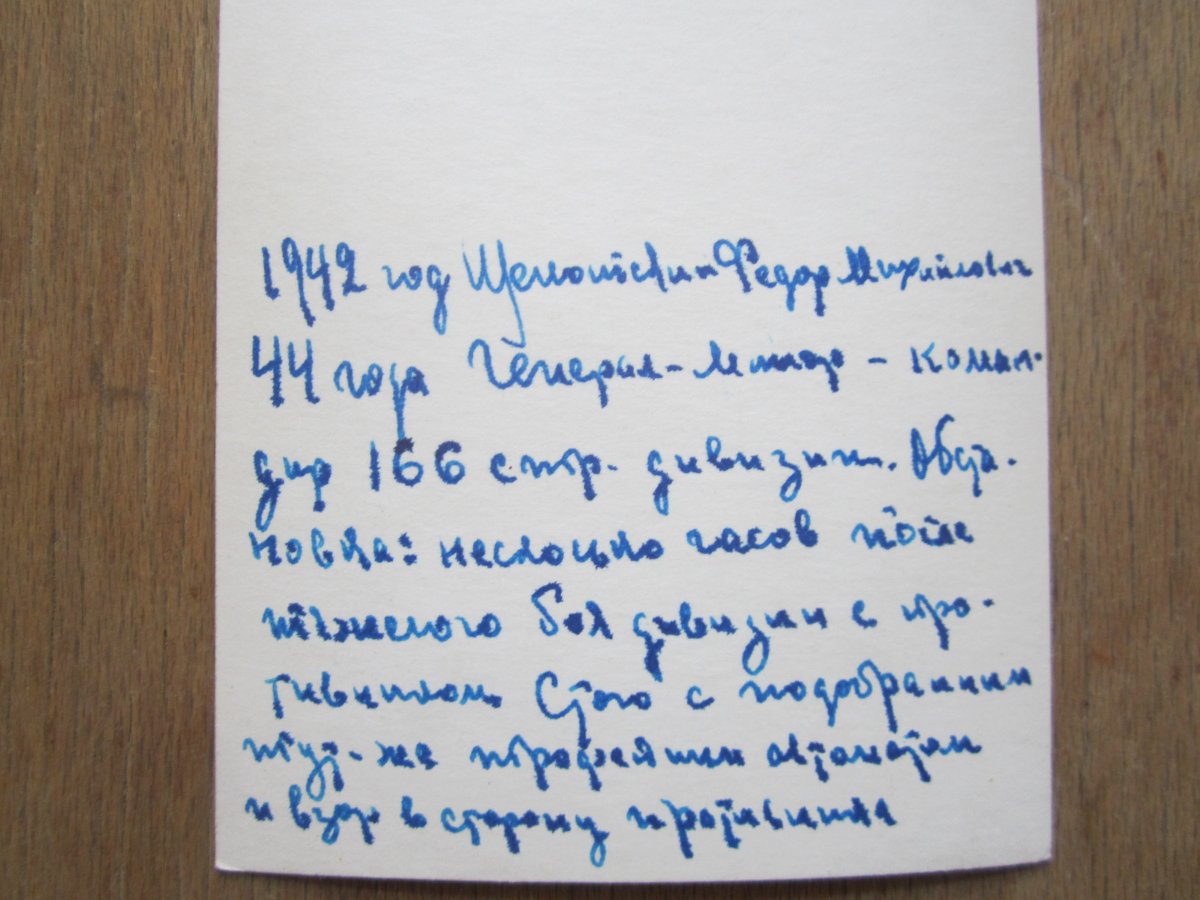 1942 год Щекотский Федор Михайлович
44 года Генерал-Майор - коман-
дир 166 стр. дивизии. Обста-
новка: несколько часов после
тяжелого боя дивизии с про-
тивником. Стою с подобранным
тут-же трофейным автоматом
и взор в сторону противника